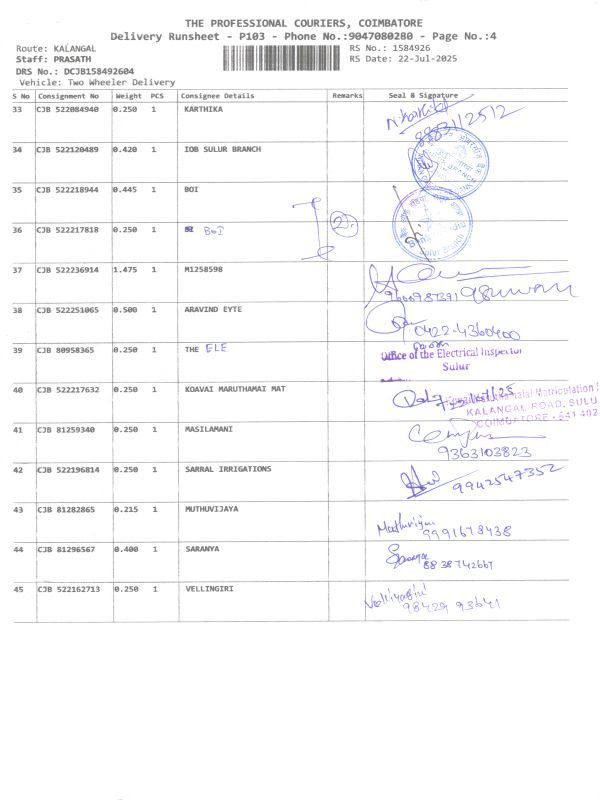 THE PROFESSIONAL COURIERS, COIMBATORE
Delivery Runsheet - P103 - Phone No.:9047080280 - Page No.:4
Route: KALANGAL RS No.: 1584926
Staff: PRASATH RS Date: 22-Jul-2025
DRS No.: DCJB158492604
Vehicle: Two Wheeler Delivery
S No Consignment No Weight PCS Consignee Details Remarks Seal & Signature
33 CJB 522084940 0.250 1 KARTHIKA
34 CJB 522120489 0.420 1 IOB SULUR BRANCH
35 CJB 522218944 0.445 1 BOI
36 CJB 522217818 0.250 1 BOI 2
37 CJB 522236914 1.475 1 M1258598
38 CJB 522251065 0.500 1 ARAVIND EYTE 0422-4360400
39 CJB 80958365 0.250 1 THE ELE Office of the Electrical Inspector
Sulur
40 CJB 522217632 0.250 1 KOAVAI MARUTHAMAI MAT Matriculation
KALANGAL ROAD, SULU
COIMBATORE - 641 402
41 CJB 81259340 0.250 1 MASILAMANI
9363103823
42 CJB 522196814 0.250 1 SARRAL IRRIGATIONS 9942547352
43 CJB 81282865 0.215 1 MUTHUVIJAYA
9991678438
44 CJB 81296567 0.400 1 SARANYA
8838742667
45 CJB 522162713 0.250 1 VELLINGIRI
98429 93641